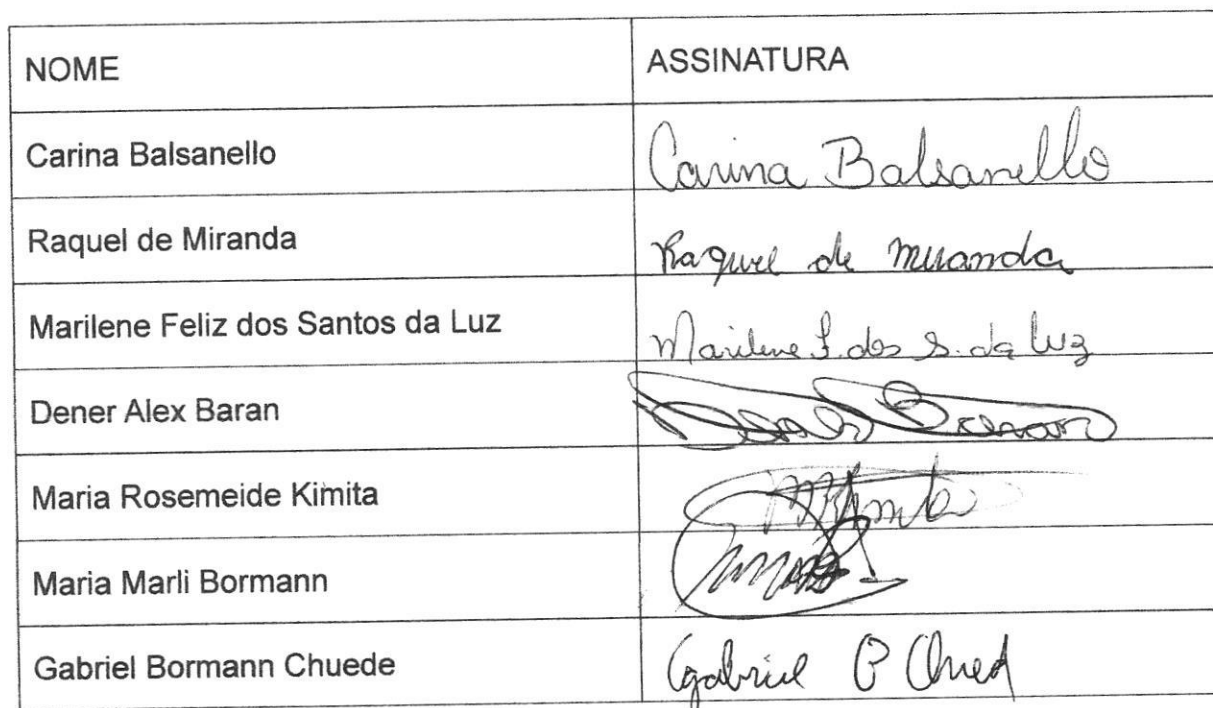 NOME ASSINATURA
Carina Balsanello Carina Balsanello
Raquel de Miranda Raquel de Miranda
Marilene Feliz dos Santos da Luz Marilene F. dos S. da Luz
Dener Alex Baran Baran
Maria Rosemeide Kimita
Maria Marli Bormann
Gabriel Bormann Chuede Gabriel B Chued